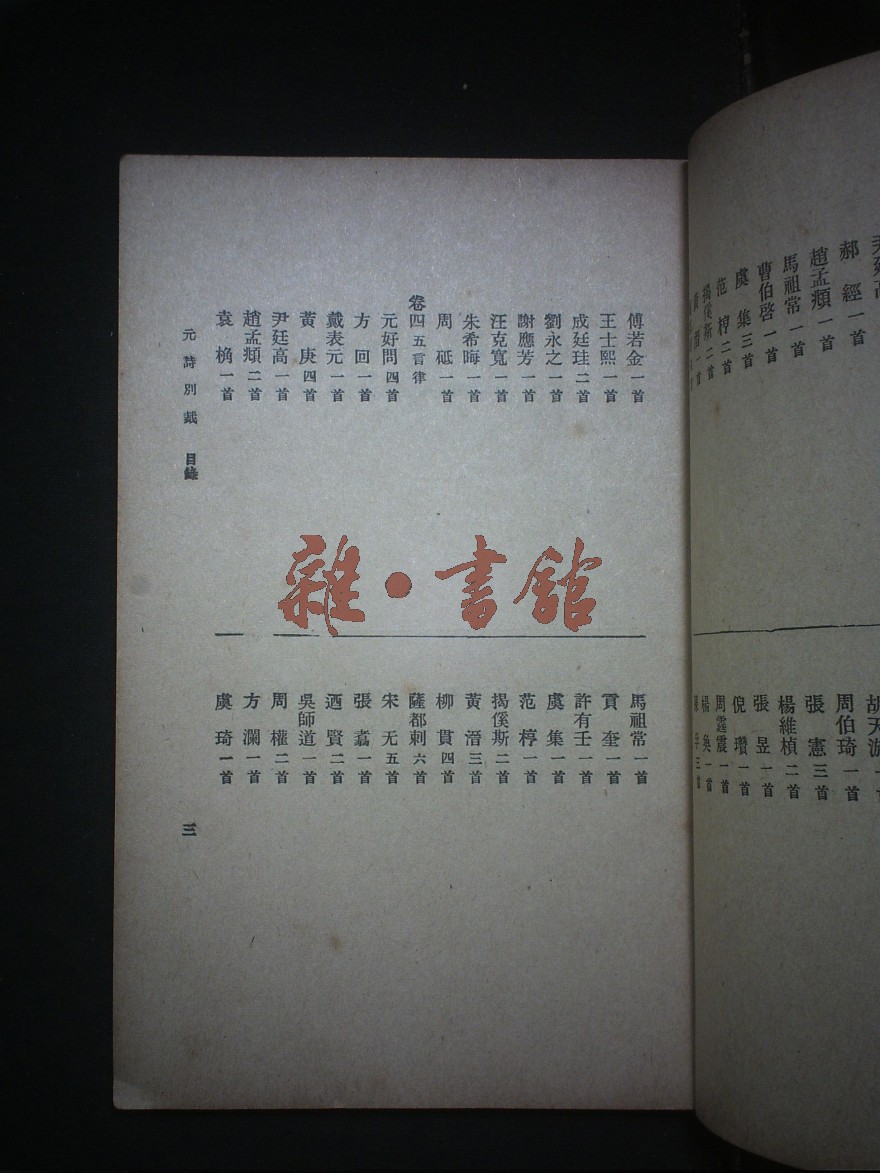 尹廷高
郝經一首
趙孟頫一首
馬祖常一首
曹伯啓一首
虞集三首
范梈二首
揭傒斯二首
胡天游
周伯琦一首
張憲三首
楊維楨二首
張昱一首
倪瓚一首
周霆震一首
楊奐一首
傅若金一首
王士熙一首
成廷珪二首
劉永之一首
謝應芳一首
汪克寬一首
朱希晦一首
周砥一首
卷四五言律
元好問四首
方回一首
戴表元一首
黃庚四首
尹廷高一首
趙孟頫二首
袁桷一首
馬祖常一首
貢奎一首
許有壬一首
虞集一首
范梈一首
揭傒斯二首
黃溍三首
柳貫四首
薩都剌六首
宋无五首
張翥一首
迺賢二首
吳師道一首
周權二首
方瀾一首
虞琦一首
元詩別裁 目錄
三
雜·書館